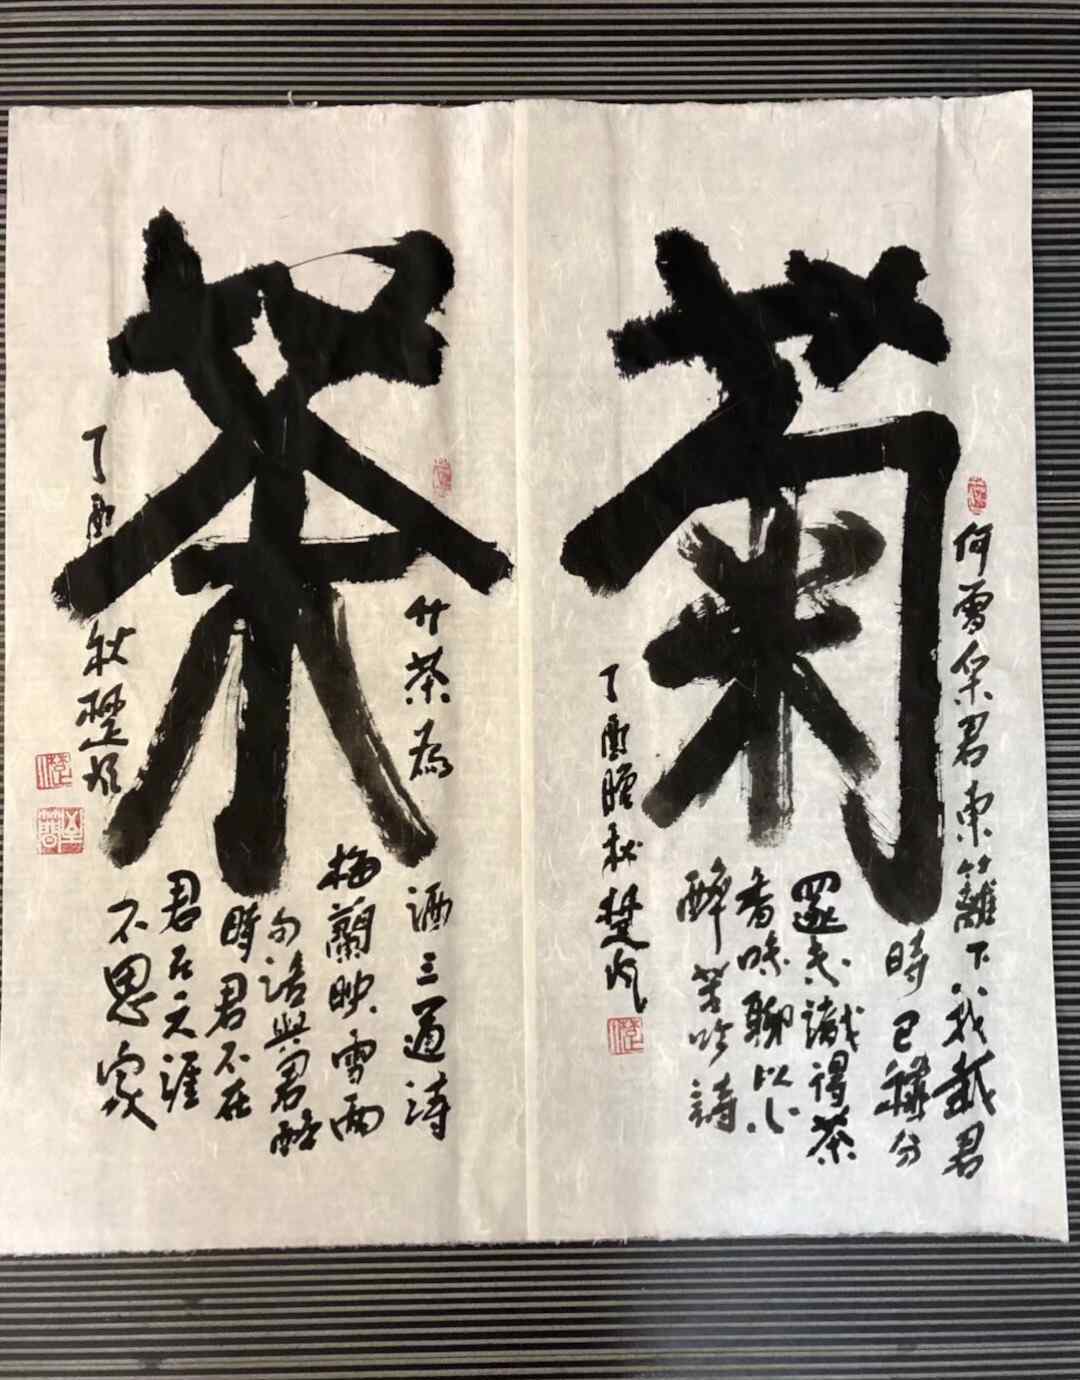 菊
何曾采君東籬下我栽君
時已穠分
還未識得茶
香味聊以心
醉苦吟詩
丁酉暄秋楚
茶
竹茶為
酒三道詩
梅蘭映雪兩
句語與君醉
時君不在
君在天涯
不思家
丁酉
秋楚